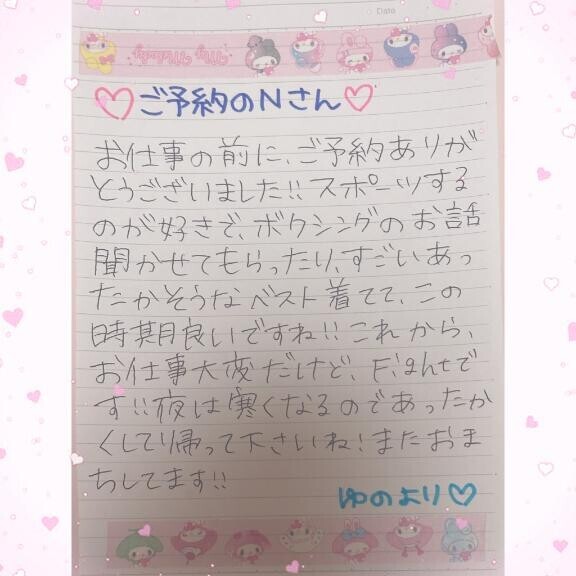 Date
My Melody
♡ご予約のNさん♡
お仕事の前に、ご予約ありが
とうございました!!スポーツする
のが好きで、ボクシングのお話
聞かせてもらったり、すごいあっ
たかそうなベスト着てて、この
時期良いですね!!これから、
お仕事大変だけど、Fightで
す!!夜は寒くなるのであったか
くしてり帰って下さいね!またおま
ちしてます!!
ゆのより♡